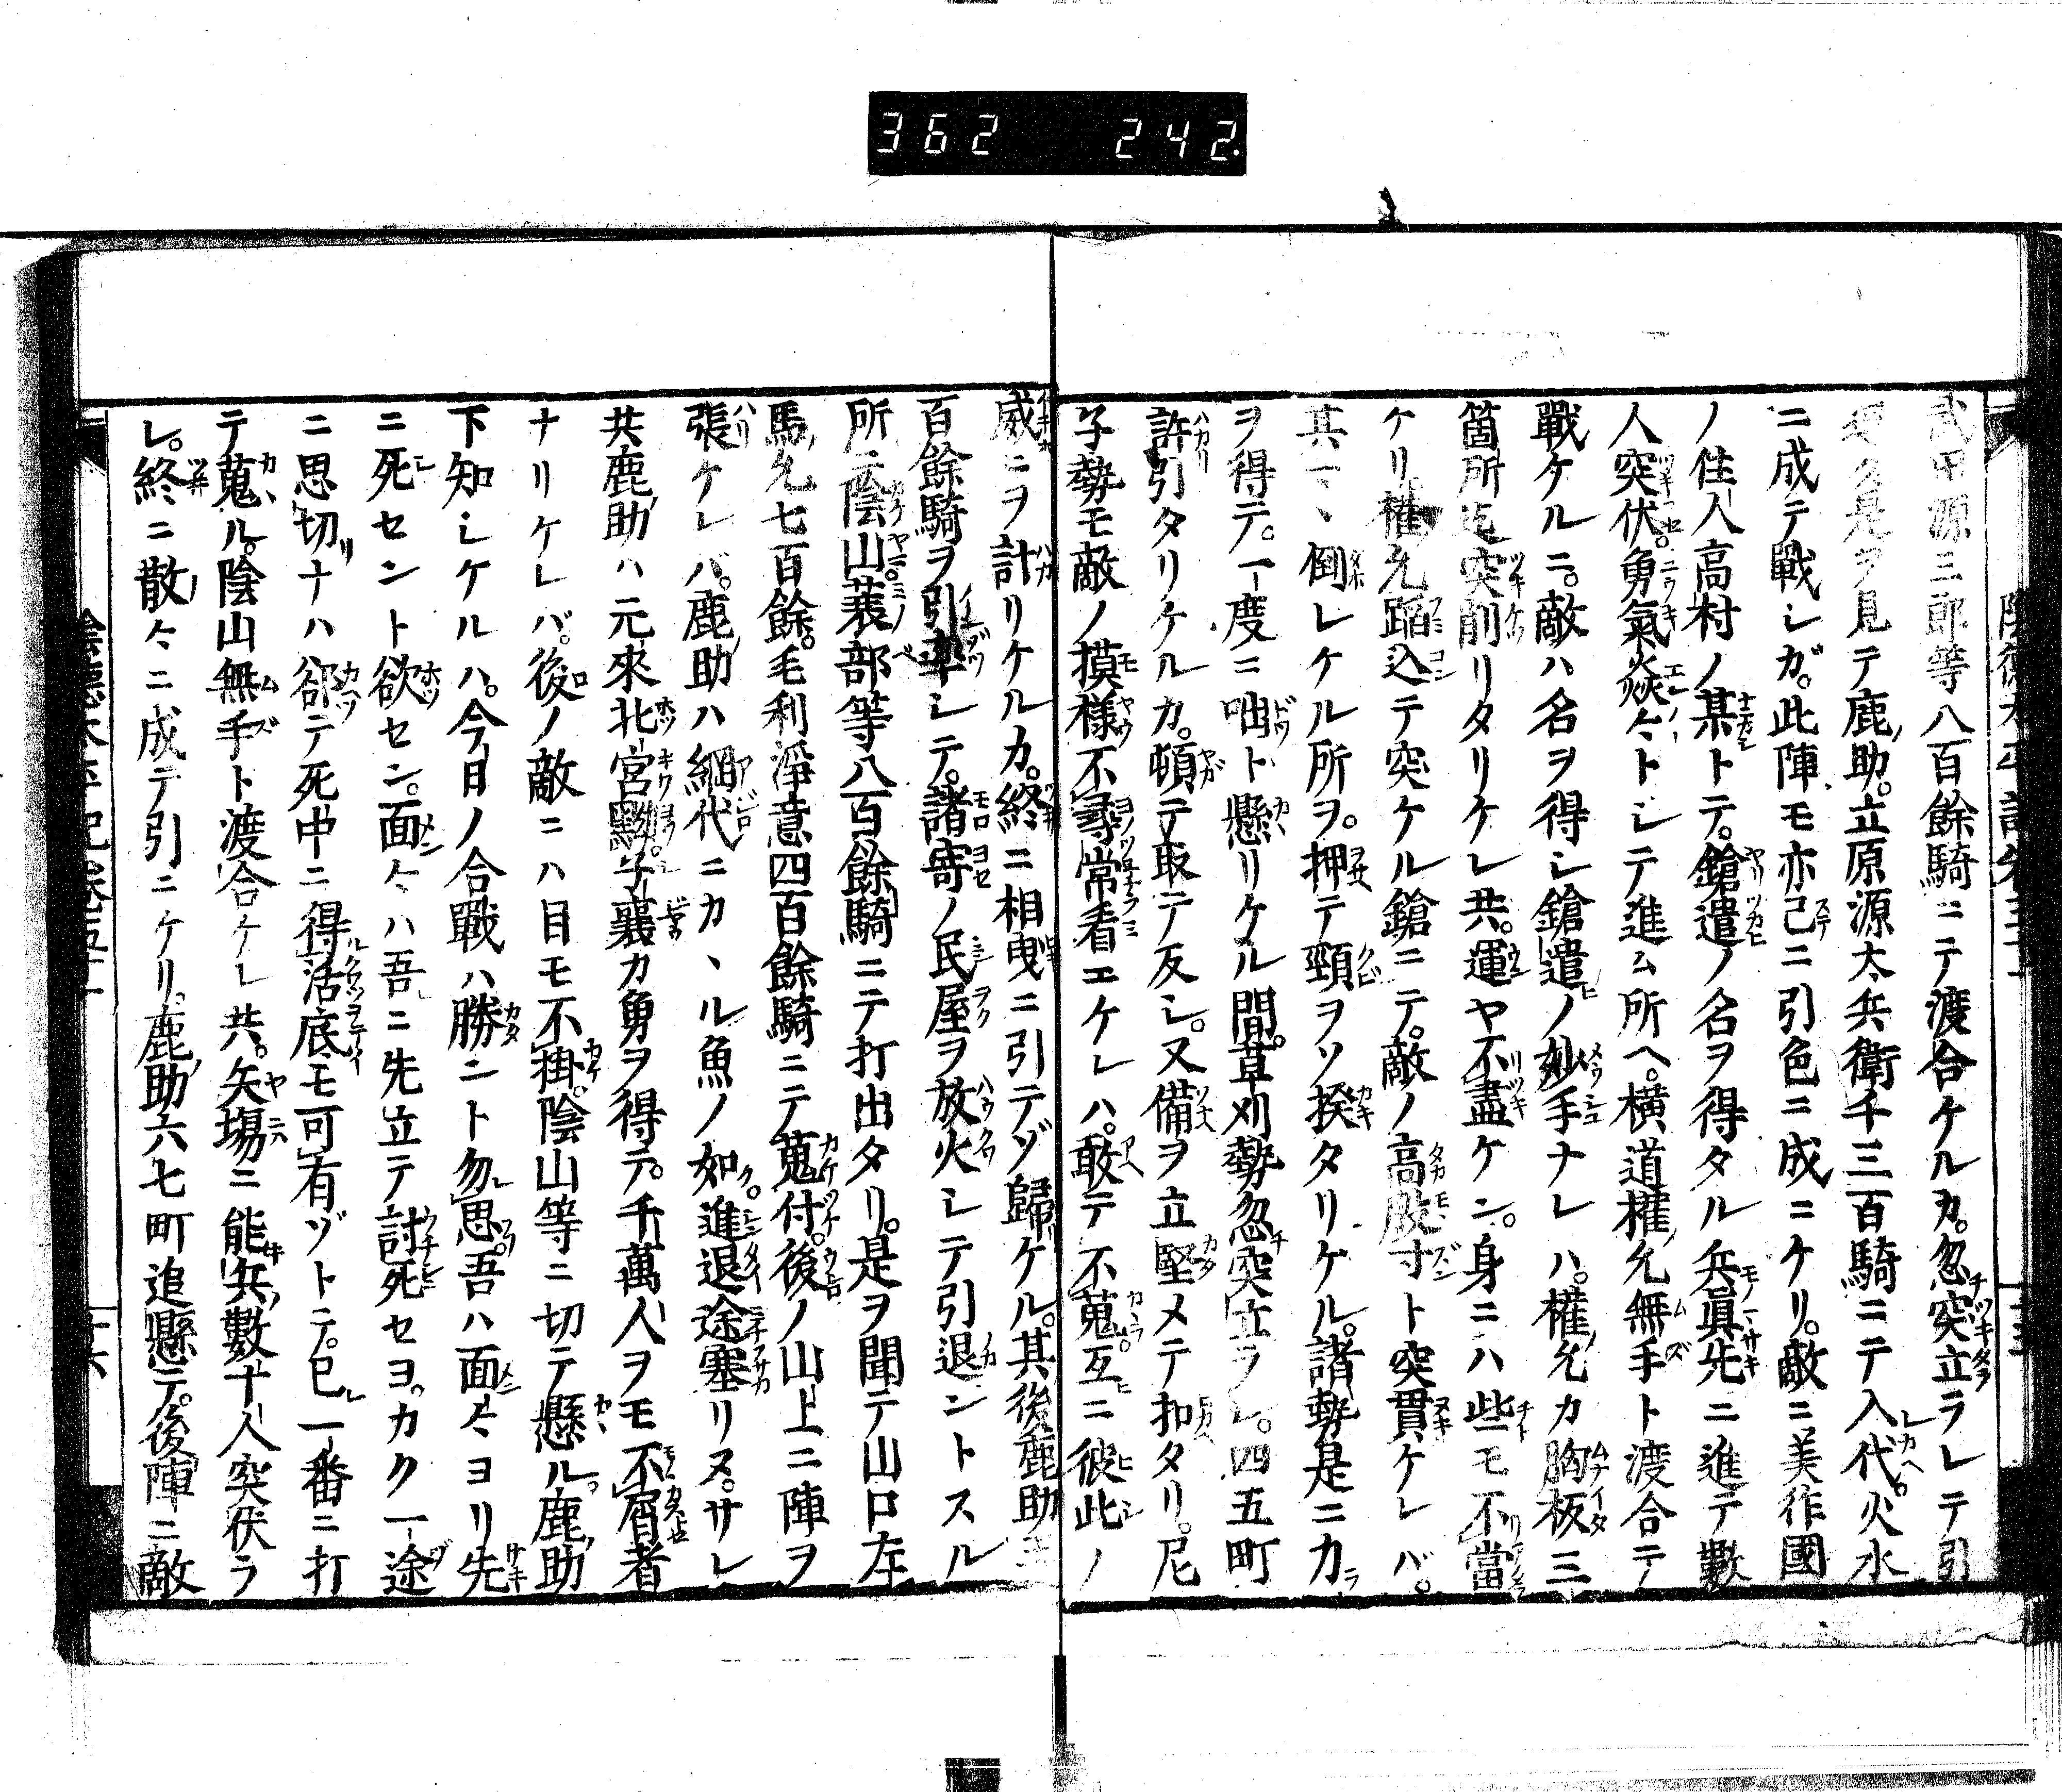 362 242.
武田源三郎等八百餘騎ニテ渡合ケルカ。忽突立ラレテ引
是ヲ見テ鹿助。立原源太兵衛千三百騎ニテ入代。火水
ニ成テ戰シガ。此陣モ亦已ニ引色ニ成ニケリ。敵ニ美作國
ノ住人高村ノ某トテ。鎗遣ノ名ヲ得タル兵眞先ニ進テ數
人突伏。勇氣焱々トシテ進ム所ヘ。横道權允無手ト渡合テ
戰ケルニ。敵ハ名ヲ得シ鎗遣ノ妙手ナレハ。權允カ胸板三
箇所迄突削リタリケレ共。運ヤ不盡ケン。身ニハ些モ不當
ケリ。權允蹈込テ突ケル鎗ニテ。敵ノ高股寸ト突貫ケレバ。
其マヽ倒レケル所ヲ。押テ頸ヲソ掻タリケル。諸勢是ニカ
ヲ得テ。一度ニ咄ト懸リケル間。草刈勢忽突立ラレ。四五町
許引タリケルカ。頓テ取テ反シ。又備ヲ立堅メテ扣タリ。尼
子勢モ敵ノ摸様不尋常看エケレハ。敢テ不蒐。互ニ彼此ノ
威ニヲ計リケルカ。終ニ相曳ニ引テゾ歸ケル。其後鹿助三
百餘騎ヲ引率シテ。諸寄ノ民屋ヲ放火シテ引退ントスル
所ニ陰山蓑部等八百餘騎ニテ打出タリ。是ヲ聞テ山口左
馬允七百餘。毛利淨意四百餘騎ニテ蒐付。後ノ山上ニ陣ヲ
張ケレバ。鹿助ハ網代ニカヽル魚ノ如。進退途塞リヌ。サレ
共鹿助ハ元來北宮黝孟子襄カ勇ヲ得テ。千萬人ヲモ不屑者
ナリケレバ。後ノ敵ニハ目モ不掛。陰山等ニ切テ懸ル。鹿助
下知シケルハ。今日ノ合戰ハ勝ニト勿思。吾ハ面々ヨリ先
ニ死セント欲セン。面々ハ吾ニ先立テ討死セヨ。カク一途
ニ思切ナハ却テ死中ニ得活底モ可有ヅトテ。已一番ニ打
テ蒐ル。陰山無手ト渡合ケレ共。矢塲ニ能兵數十人突伏ラ
レ。終ニ散々ニ成テ引ニケリ。鹿助六七町追懸テ。後陣ニ敵